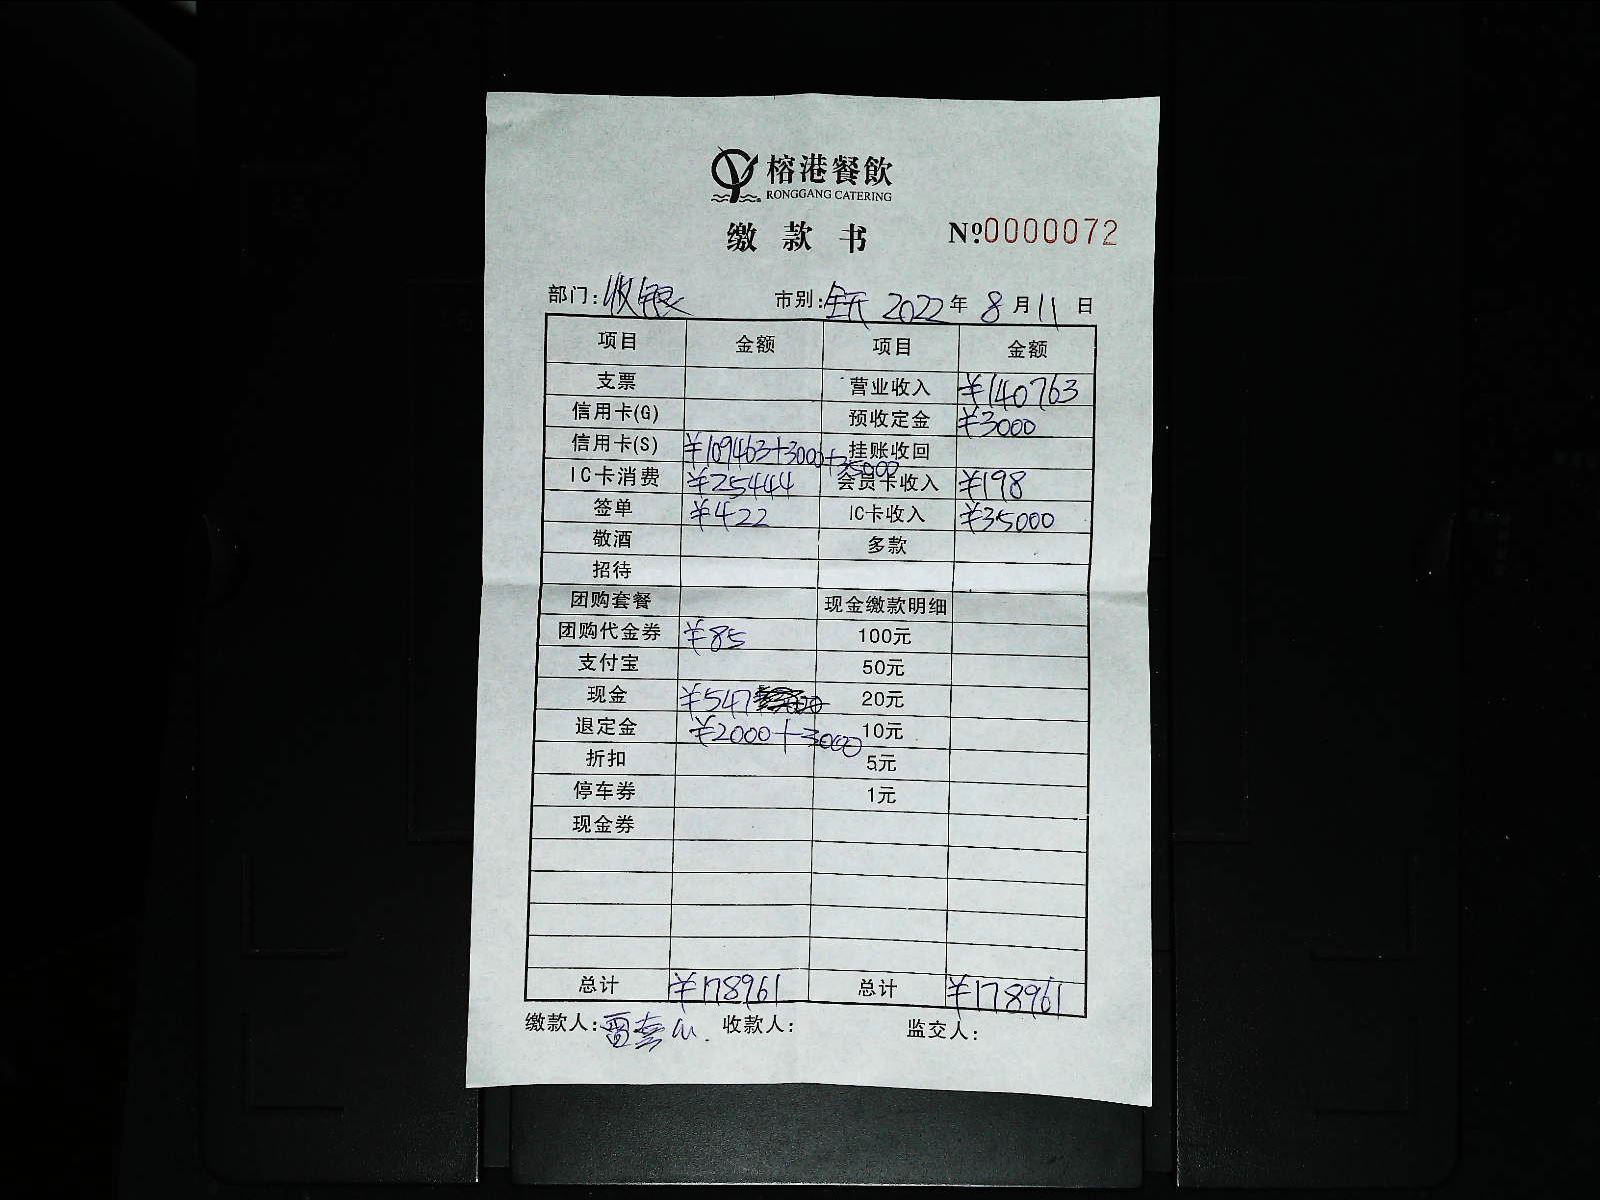 榕港餐飲
RONGGANG CATERING
缴款书 №0000072
部门:收银 市别:全天 2022年8月11日
项目 金额 项目 金额
支票 营业收入 ¥140763
信用卡(G) 预收定金 ¥3000
信用卡(S) ¥109463+3000+35000 挂账收回
IC卡消费 ¥25444 会员卡收入 ¥198
签单 ¥422 IC卡收入 ¥35000
敬酒 多款
招待
团购套餐 现金缴款明细
团购代金券 ¥85 100元
支付宝 50元
现金 ¥547 20元
退定金 ¥2000+3000 10元
折扣 5元
停车券 1元
现金券
总计 ¥178961 总计 ¥178961
缴款人: 收款人: 监交人: